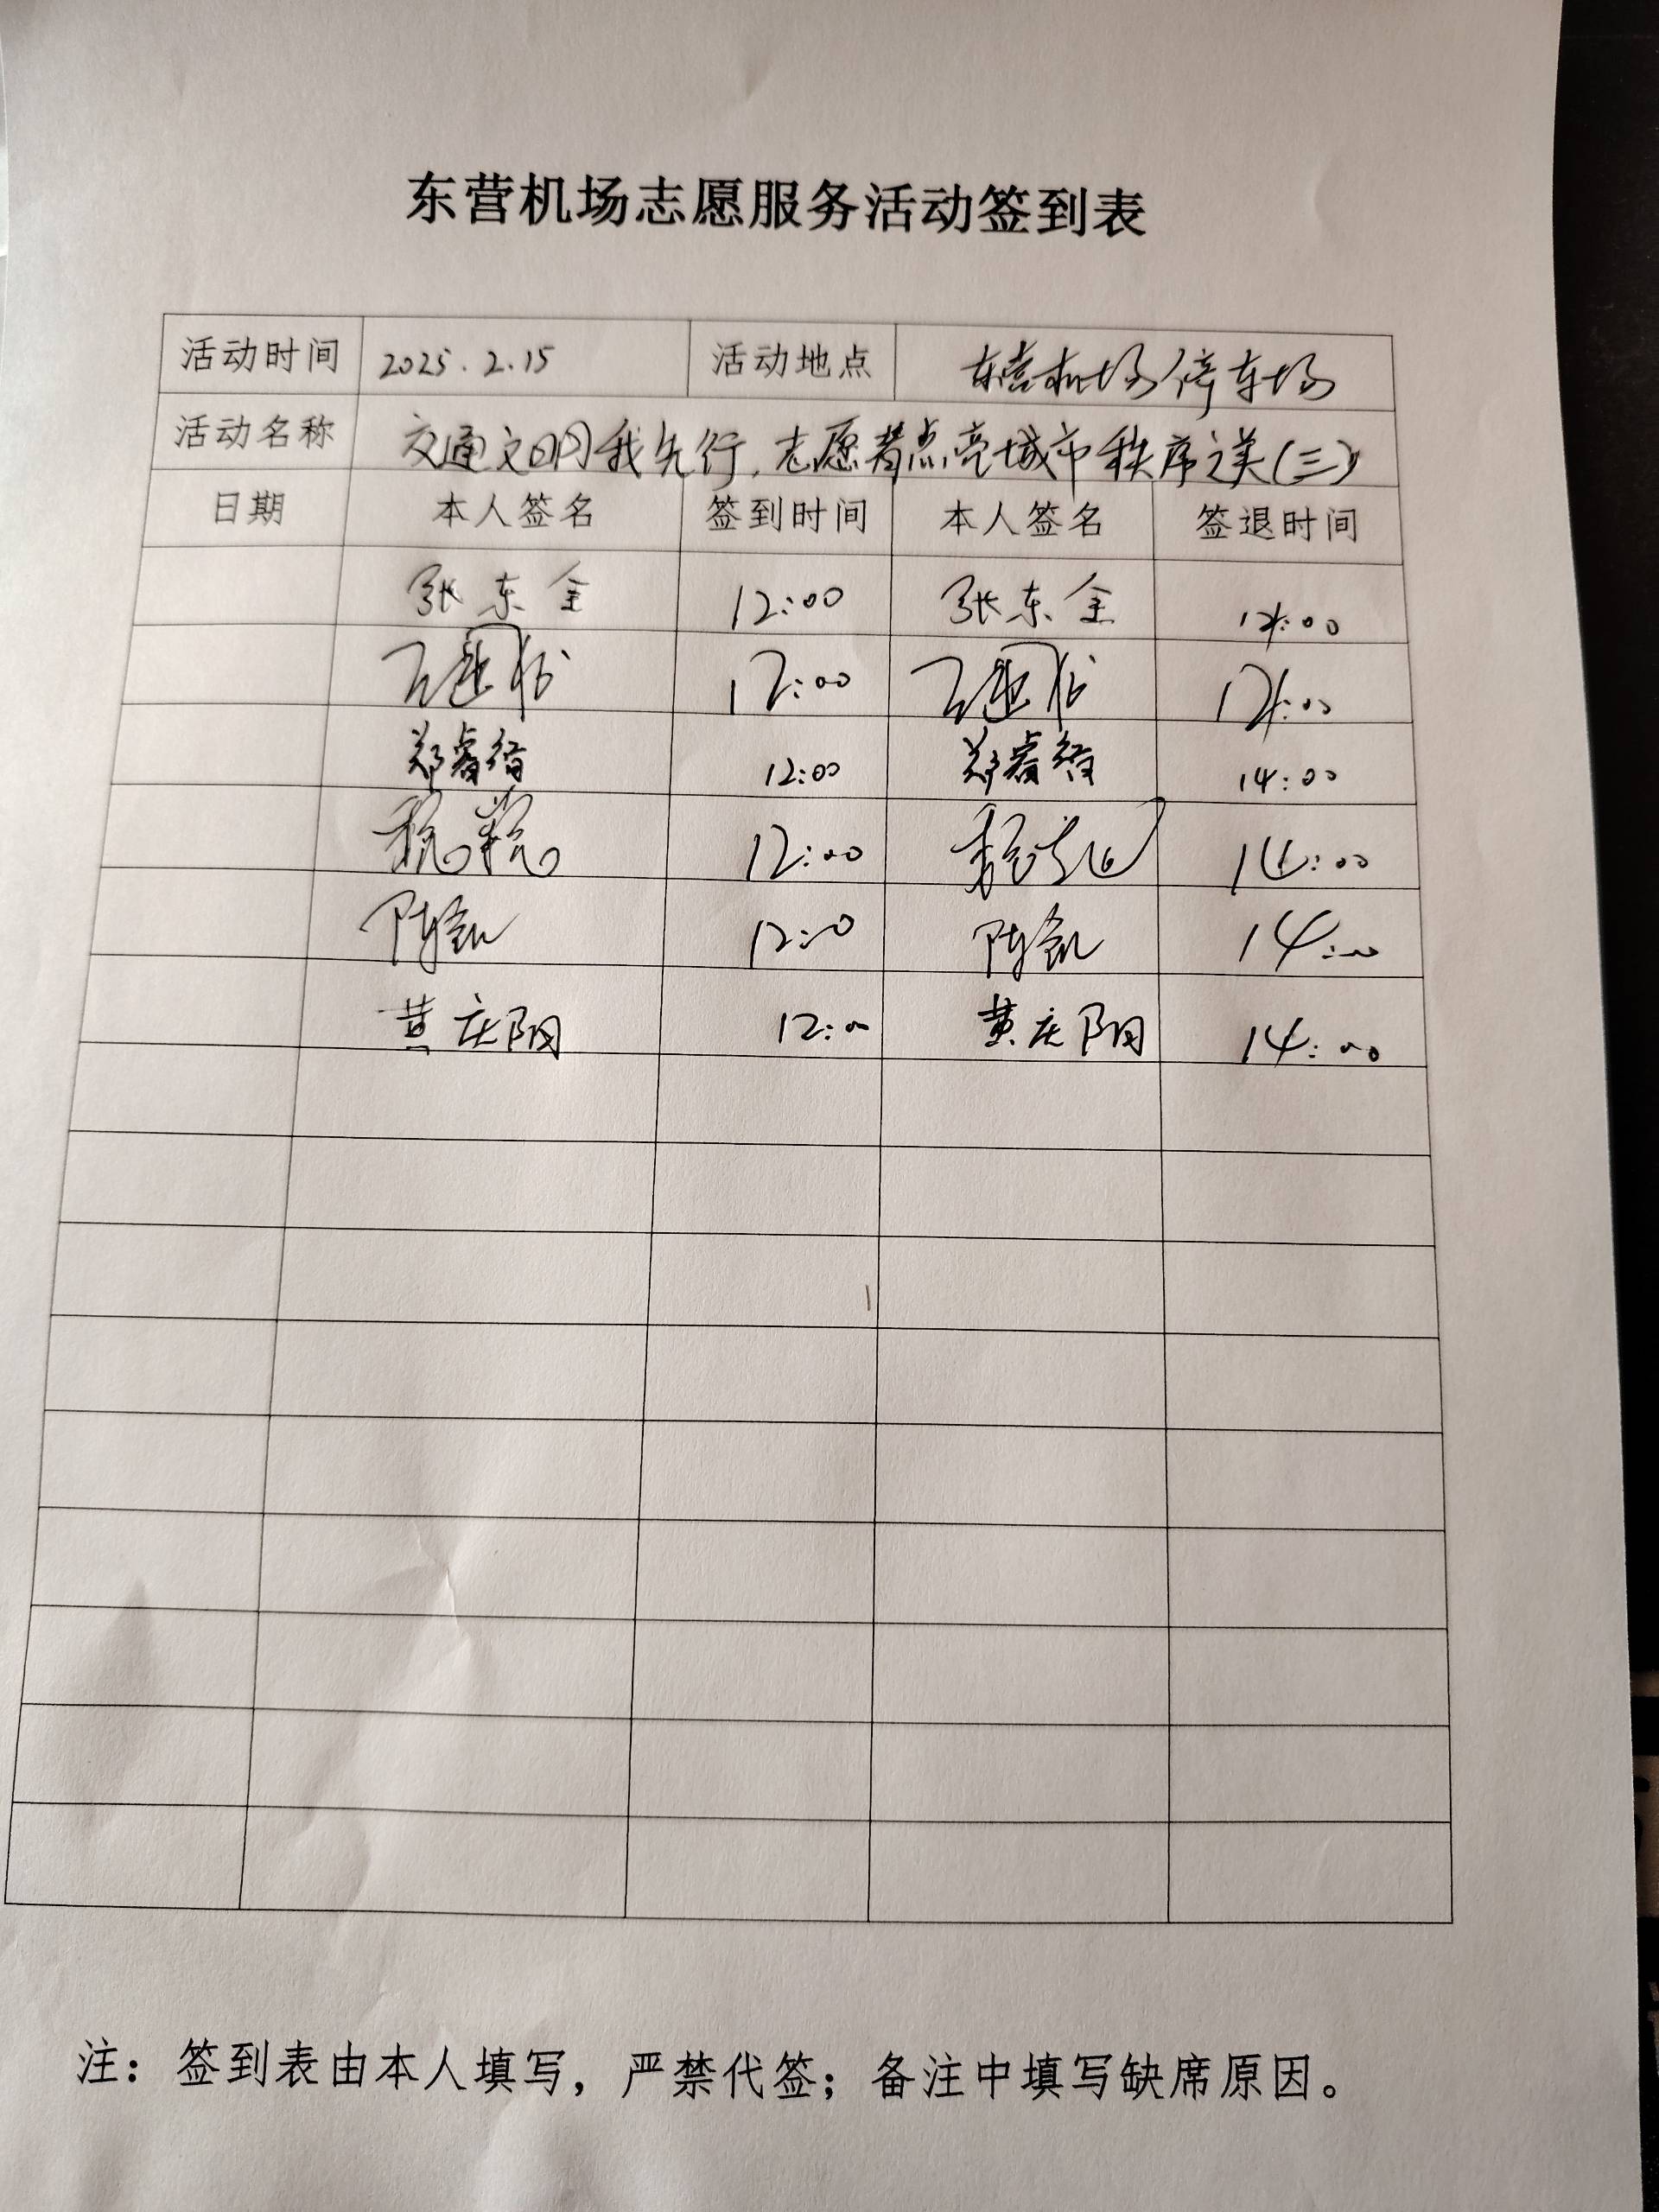 东营机场志愿服务活动签到表
活动时间 2025.2.15 活动地点 东营机场停车场
活动名称 交通文明我先行,志愿者点亮城市秩序之美(三)
日期 本人签名 签到时间 本人签名 签退时间
张东全 12:00 张东全 14:00
12:00 14:00
郑睿绮 12:00 郑睿绮 14:00
12:00 14:00
陈凯 12:00 陈凯 14:00
黄庆阴 12:00 黄庆阴 14:00
注:签到表由本人填写,严禁代签;备注中填写缺席原因。